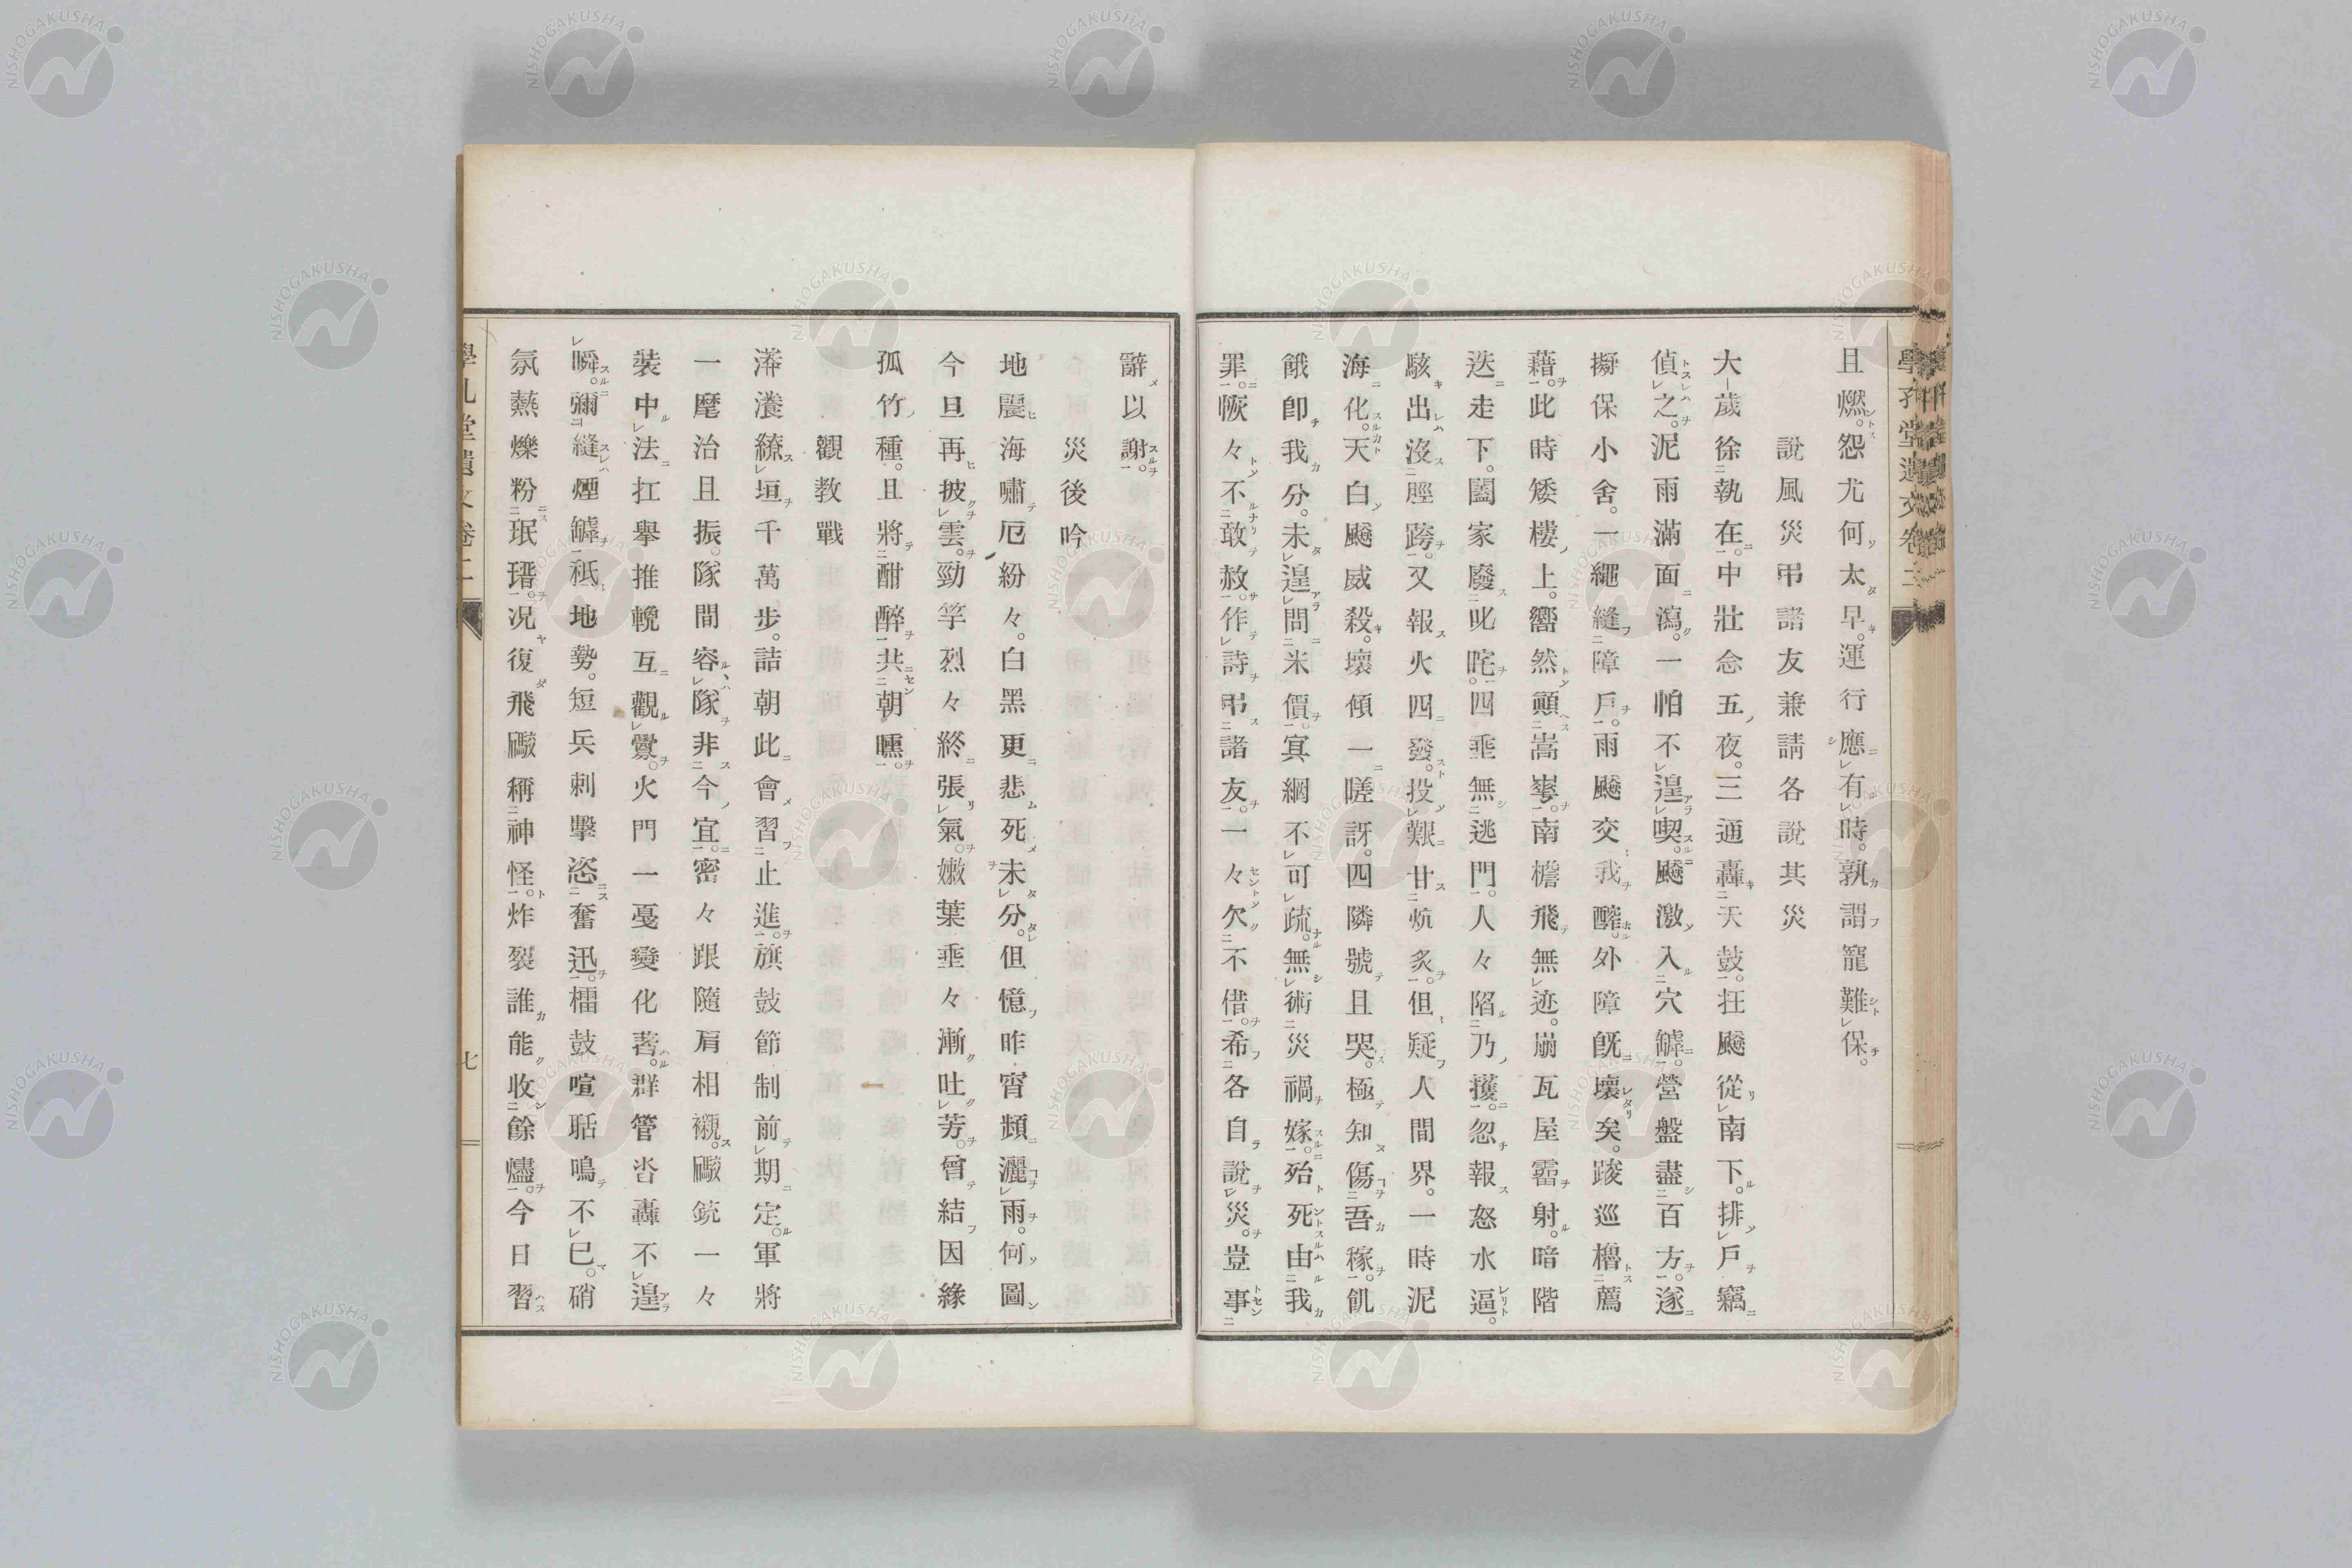 且燃。怨尤何太早。運行應有時。孰謂寵難保。
說風災弔諸友兼請各說其災
大歲徐執在。中壯念五夜。三通轟天鼓。狂颷從南下。排戶竊
偵之。泥雨滿面瀉。一怕不遑喫。颷激入穴罅。營盤盡百方。遂
擬保小舍。一繩縫障戶。雨颷交我醡。外障既壞矣。踆巡櫓薦
藉。此時矮樓上。嚮然顚嵩崋。南檐飛無迹。崩瓦屋霤射。暗階
迭走下。闔家廢叱咤。四垂無逃門。人々陷乃擭。忽報怒水逼。
駭出沒脛跨。又報火四發。投艱甘炕炙。但疑人間界。一時泥
海化。天白颷威殺。壞傾一嗟訝。四隣號且哭。極知傷吾稼。飢
餓卽我分。未遑問米價。寘網不可疏。無術災禍嫁。殆死由我
罪。恢々不敢赦。作詩弔諸友。一々欠不借。希各自說災。豈事
辭以謝。
災後吟
地震海嘯厄紛々。白黑更悲死未分。但憶昨宵頻灑雨。何圖
今旦再披雲。勁竿烈々終張氣。嫩葉垂々漸吐芳。曾結因緣
孤竹種。且將酣醉共朝曛。
觀教戰
漭瀁繚垣千萬步。詰朝此會習止進。旗鼓節制前期定。軍將
一麾治且振。隊間容隊非今宜。密々跟隨肩相襯。礮銃一々
裝中法。扛擧推輓互觀釁。火門一戞變化蓍。群管沓轟不遑
瞬。彌縫煙罅祗地勢。短兵刺擊恣奮迅。櫑鼓喧聒鳴不已。硝
氛爇爍粉珉瑨。况復飛礮稱神怪。炸裂誰能收餘燼。今日習
學孔堂遺文卷二
七
NISHOGAKUSHA